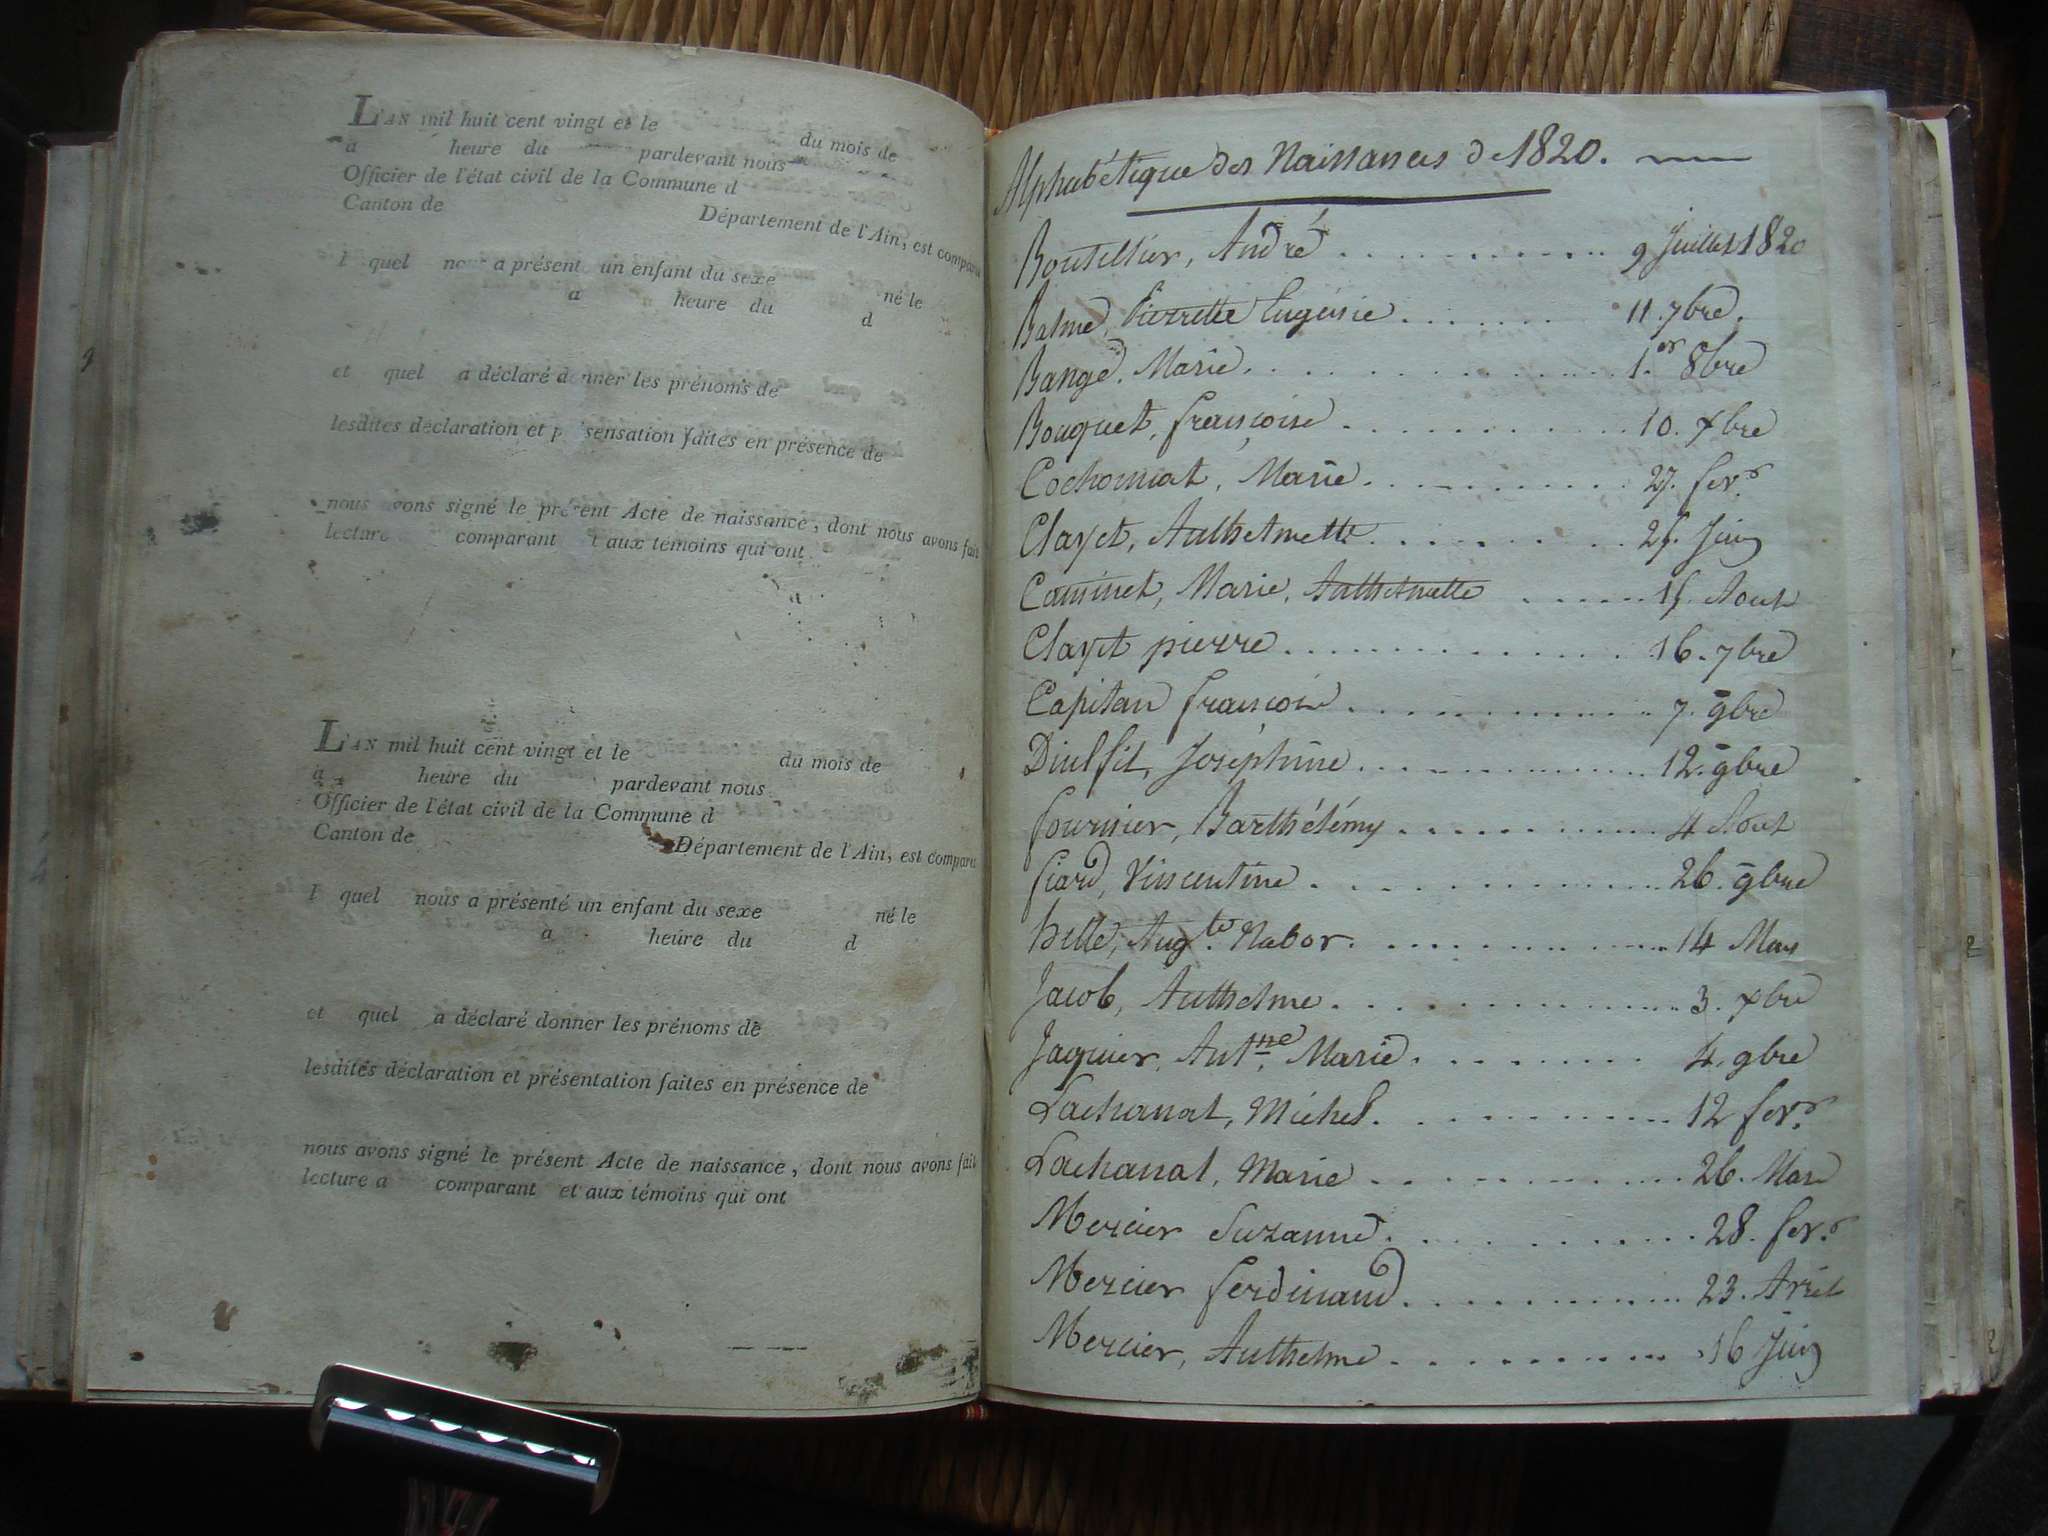 L'AN mil huit cent vingt et le du mois de
à heure du pardevant nous
Officier de l'état civil de la Commune d
Canton de Département de l'Ain, est comparu
l quel nous a présenté un enfant du sexe né le
a heure du d
et quel a déclaré donner les prénoms de
lesdites déclaration et présensation faites en présence de
nous avons signé le présent Acte de naissance, dont nous avons fait
lecture comparant et aux témoins qui ont
L'AN mil huit cent vingt et le du mois de
à heure du pardevant nous
Officier de l'état civil de la Commune d
Canton de Département de l'Ain, est comparu
l quel nous a présenté un enfant du sexe né le
a heure du d
et quel a déclaré donner les prénoms de
lesdites déclaration et présentation faites en présence de
nous avons signé le présent Acte de naissance, dont nous avons fait
lecture a comparant et aux témoins qui ont
Alphabétique des Naissances de 1820.
Boutellier, André 9 Juillet 1820
Balme, Pierrette Eugénie 11. 7bre.
Bange. Marie. 1.er 8bre
Bouquet, françoise 10. xbre
Cochonnat, Marie. 27. fevr.
Clayet, Anthelmette 25. Juin
Caminet, Marie, Anthelmette 15. Aout
Clayet pierre 16. 7bre
Capitan françois 7. 9bre
Diulfit, Joséphine 12. 9bre
fournier, Barthélémy 4 Aout
ficard, Vincentine 26. 9bre
hille, Aug.te Nabor. 14 Mars
Jacob, Anthelme 3. xbre
Jaquier, Ant.ne Marie 4. 9bre
Lachanat, Michel. 12 fevr.
Lachanat, Marie 26. Mars
Mercier Suzanne 28. fevr.
Mercier ferdinand 23. Avril
Mercier, Anthelme 16 Juin